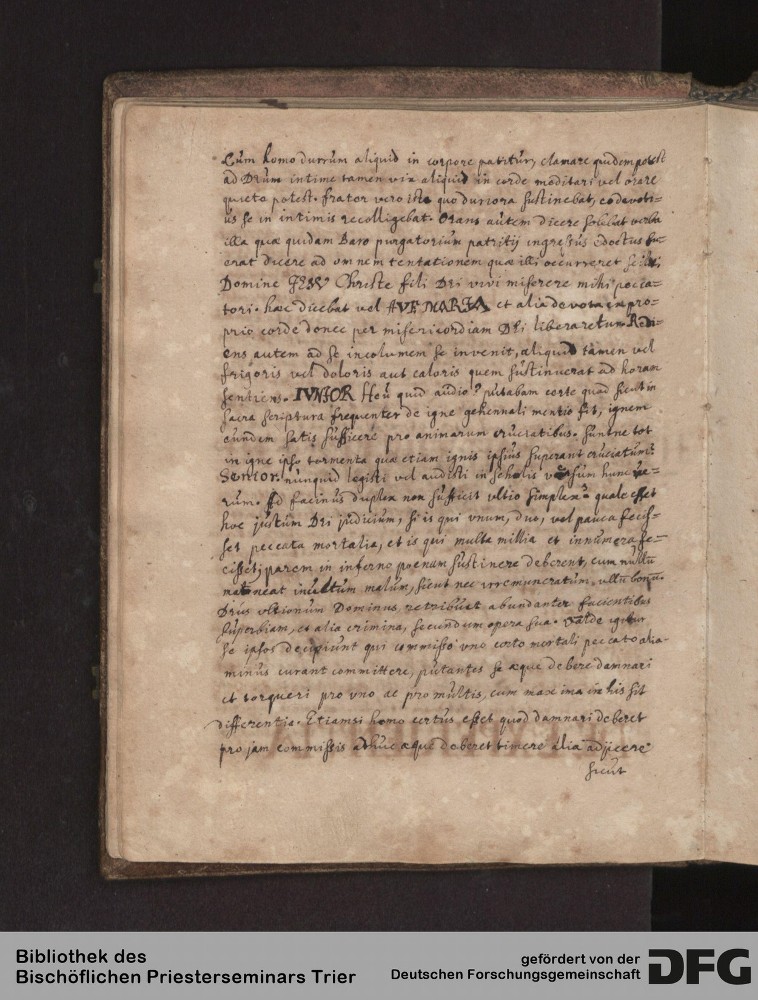 Cùm homo durrùm aliquid in corpore patitùr, clamare quidem potest
ad Deùm intime tamen vix aliquid in corde meditari vel orare
quieto potest. frater vero iste quo duriora sùstinebat, eo devoti=
ùs se in intimis recolligebat. Orans aùtem dicere solebat verba
illa quæ quidam Baro purgatoriùm patritij ingressùs edoctus fu=
erat dicere ad omnem tentationem quæ illi occùrreret
Domine JESV Christe fili Dei vivi miserere mihi pecca=
tori. hæc dicebat vel AVE MARIA et alia devota ex pro=
prio corde donec per misericordiam Dei liberaretur. Redi=
ens autem ad se incolumem se invenit, aliquid tamen vel
frigoris vel doloris aut caloris quem sùstinuerat ad horam
sentiens. IVNIOR Heù quid aùdio? pùtabam certe quod sicut in
sacra scriptura frequenter de igne gehennali mentio fit, ignem
eùndem satis sùfficere pro animarum crùciatibus. sùntne tot
in igne ipso tormenta quæ etiam ignis ipsiùs sùperant crùciatùm?
Senior. nùnquid legisti vel audisti in scholis versùm hunc ve=
rum. Ad facinus duplex non sufficit ultio simplex? quale esset
hoc jùstùm Dei jùdiciùm, si is qui vnum, duo, vel pauca fecis=
set peccata mortalia, et is qui multa millia et innùmera fe=
cisset, parem in inferno poenam sùstinere deberent, cum nùllù
maneat inultum malùm, sicut nec irremuneratùm, ùllù bonù.
Deùs vltionùm Dominus, retribùat abundanter facientibus
sùperbiam, et alia crimina, secùndùm opera sua. valde igitur
se ipsos decipiùnt qui commisso vno certo mortali peccato alia
minùs curant committere, pùtantes se æque debere damnari
et torqueri pro vno ac pro multis, cum maxima in his sit
differentia. Etiamsi homo certùs esset quod damnari deberet
pro jam commissis adhùc æque deberet timere alia adjicere
sicùt
Bibliothek des
Bischöflichen Priesterseminars Trier
gefördert von der
Deutschen Forschungsgemeinschaft
DFG